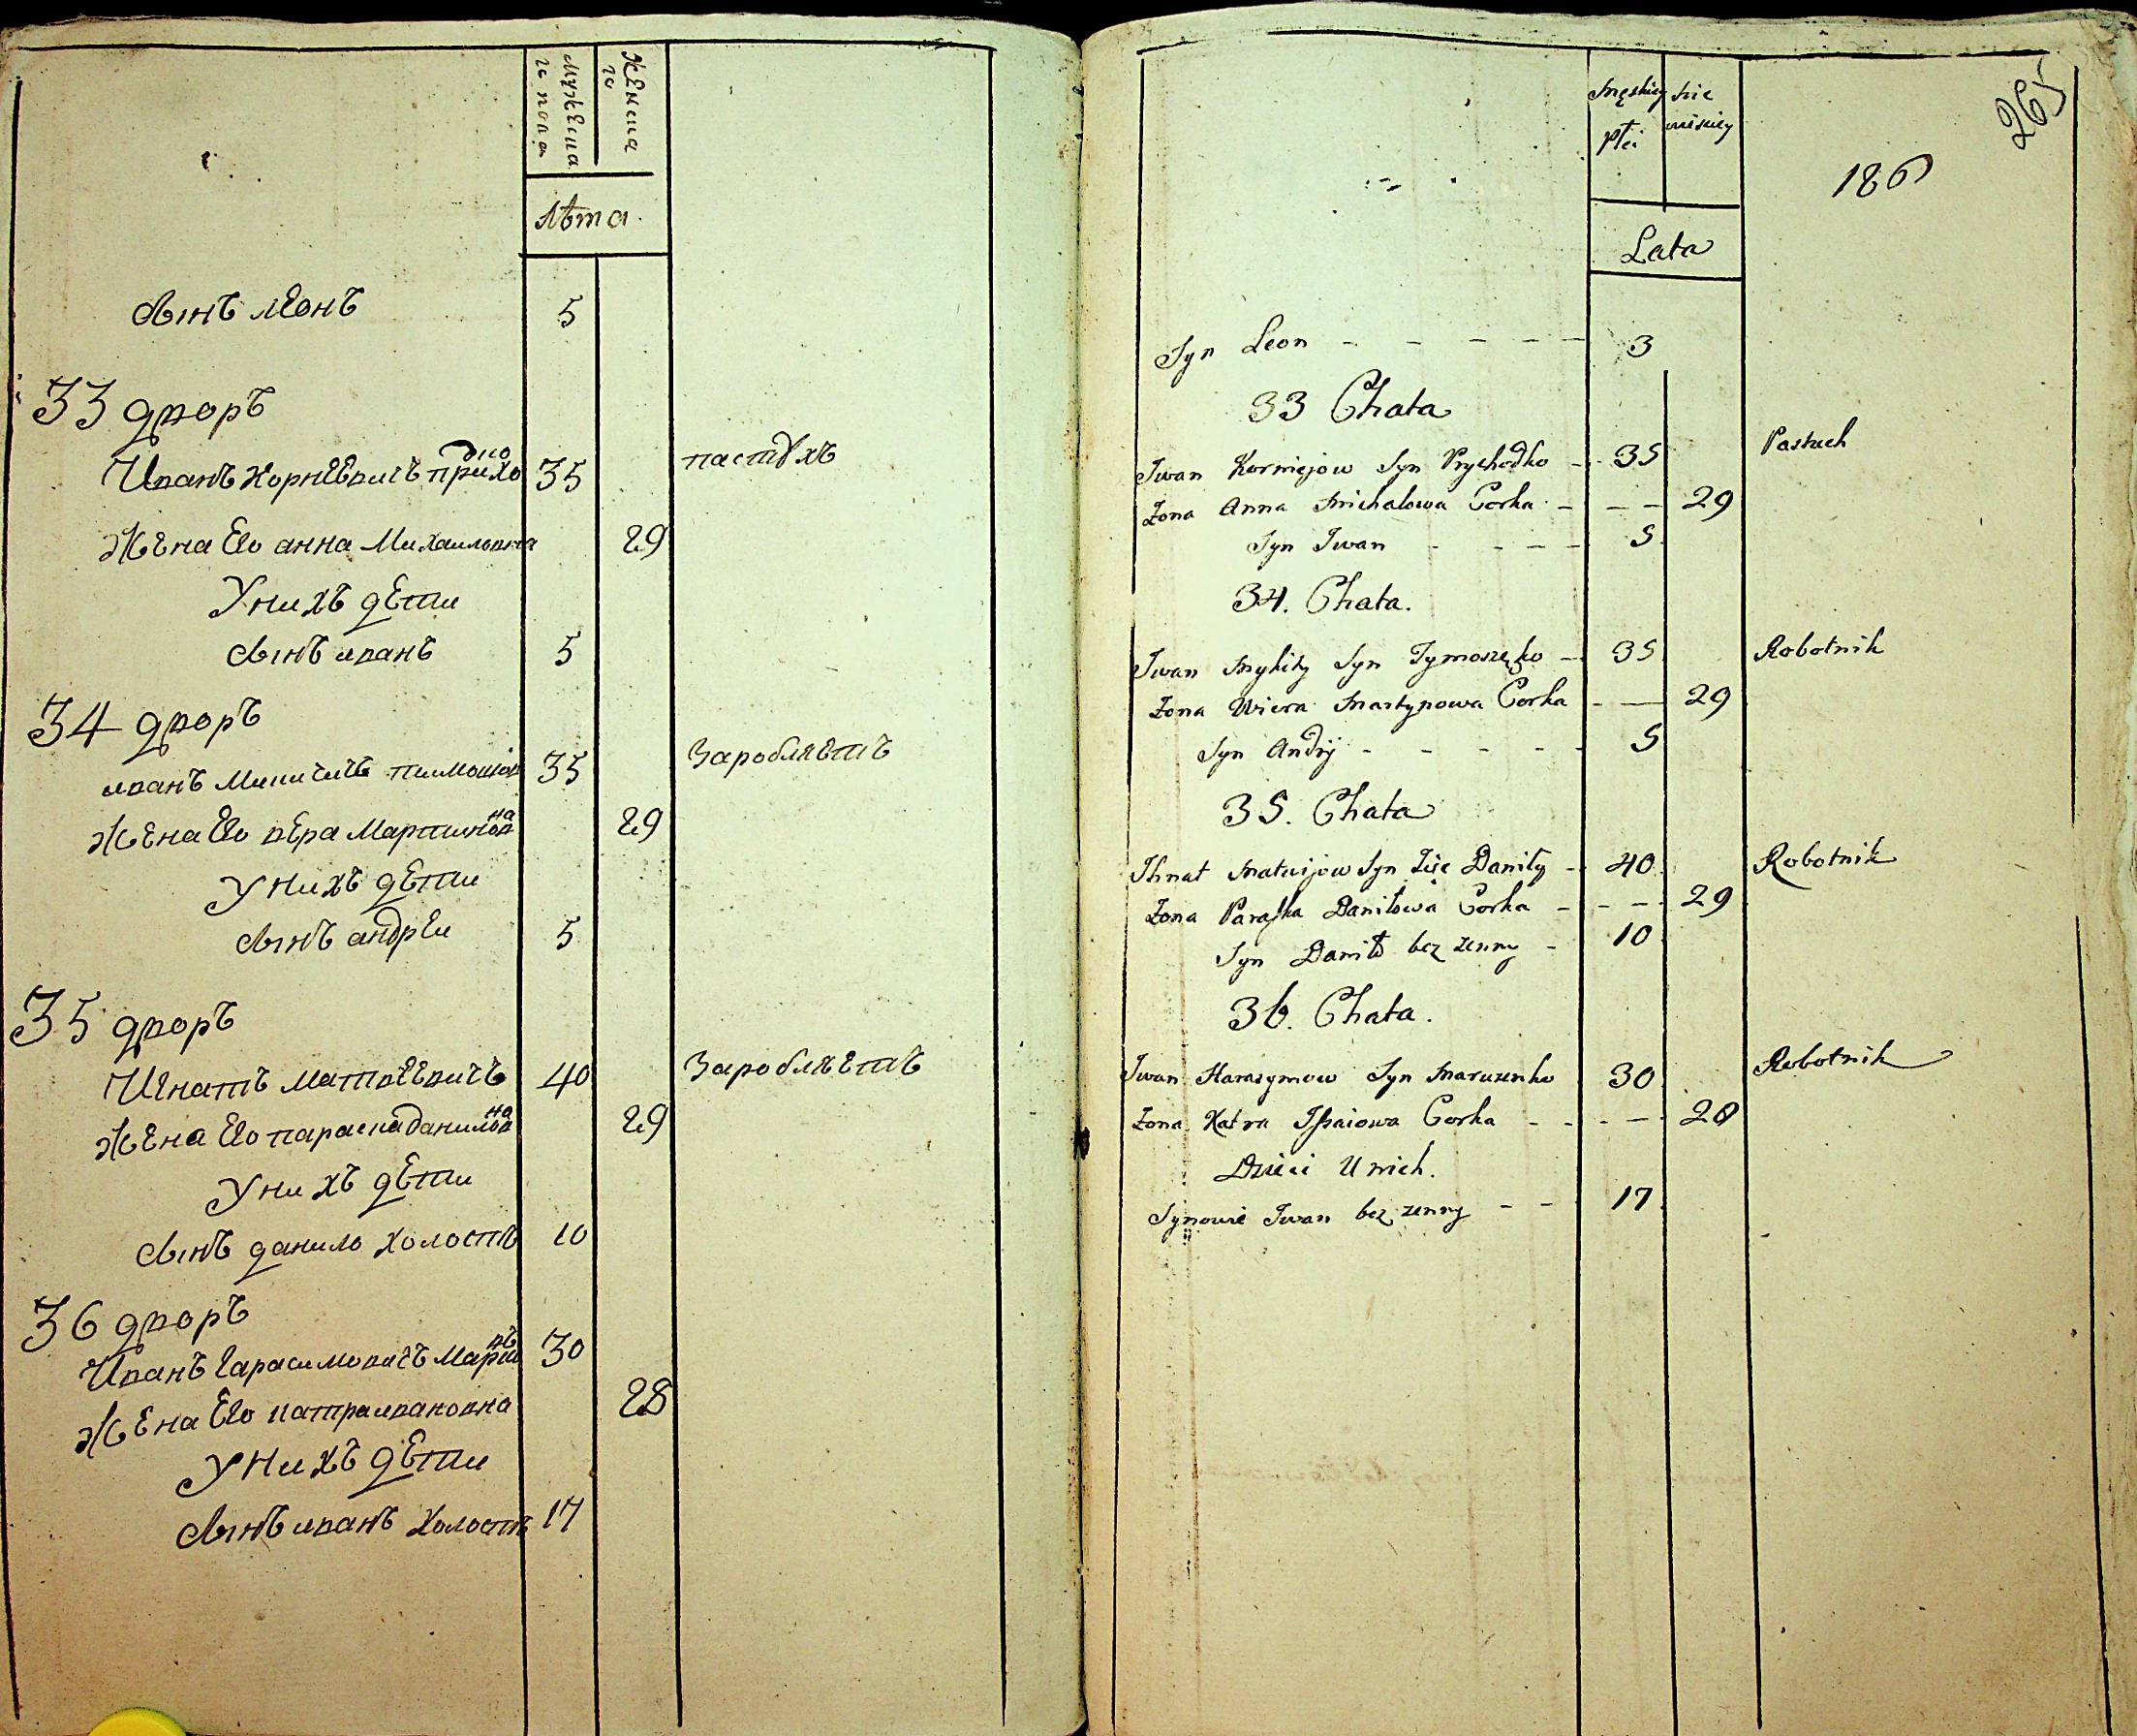 мужеска
го пола
женска
го
лѣта
сынъ леонъ 5
33 дворъ
Иванъ Корнѣевичъ приходко 35 пастухъ
Жена Его анна Михаиловна 29
У нихъ дети
сынъ иванъ 5
34 дворъ
иванъ Микитичъ 35 Заробляетъ
Жена Его вера Мартиновна 29
У нихъ дети
сынъ андреи 5
35 дворъ
Игнатъ Матвѣевичъ 40 Заробляетъ
Жена Его параска даниловна 29
У нихъ дети
сынъ данило холостъ 10
36 дворъ
Иванъ Гарасимовичъ 30
Жена Его катра ивановна 28
У нихъ дети
сынъ иванъ холостъ 17
265
męskiey
płci
żie
nskiey
186
Lata
Syn Leon - - - - - 3
33 Chata
Iwan Korniejow Syn Prychodko - 35 Pastuch
Zona Anna Michalowa Corka - - - 29
Syn Iwan - - - - 5
34. Chata.
Iwan Mykity Syn Tymoszęko - 35 Robotnik
Zona Wiera Martynowa Corka - - 29
Syn Andrij - - - - - 5
35. Chata
Ihnat Matwijow Syn Zię Daniły - 40 Robotnik
Zona Paraska Daniłowa Corka - - - 29
Syn Daniło bez zenny - 10
36. Chata.
Iwan Harasymow Syn Maruzenko 30 Robotnik
Zona Katra Issaiowa Corka - - - - 28
Dzieci U nich.
Synowie Iwan bez zenny - - 17